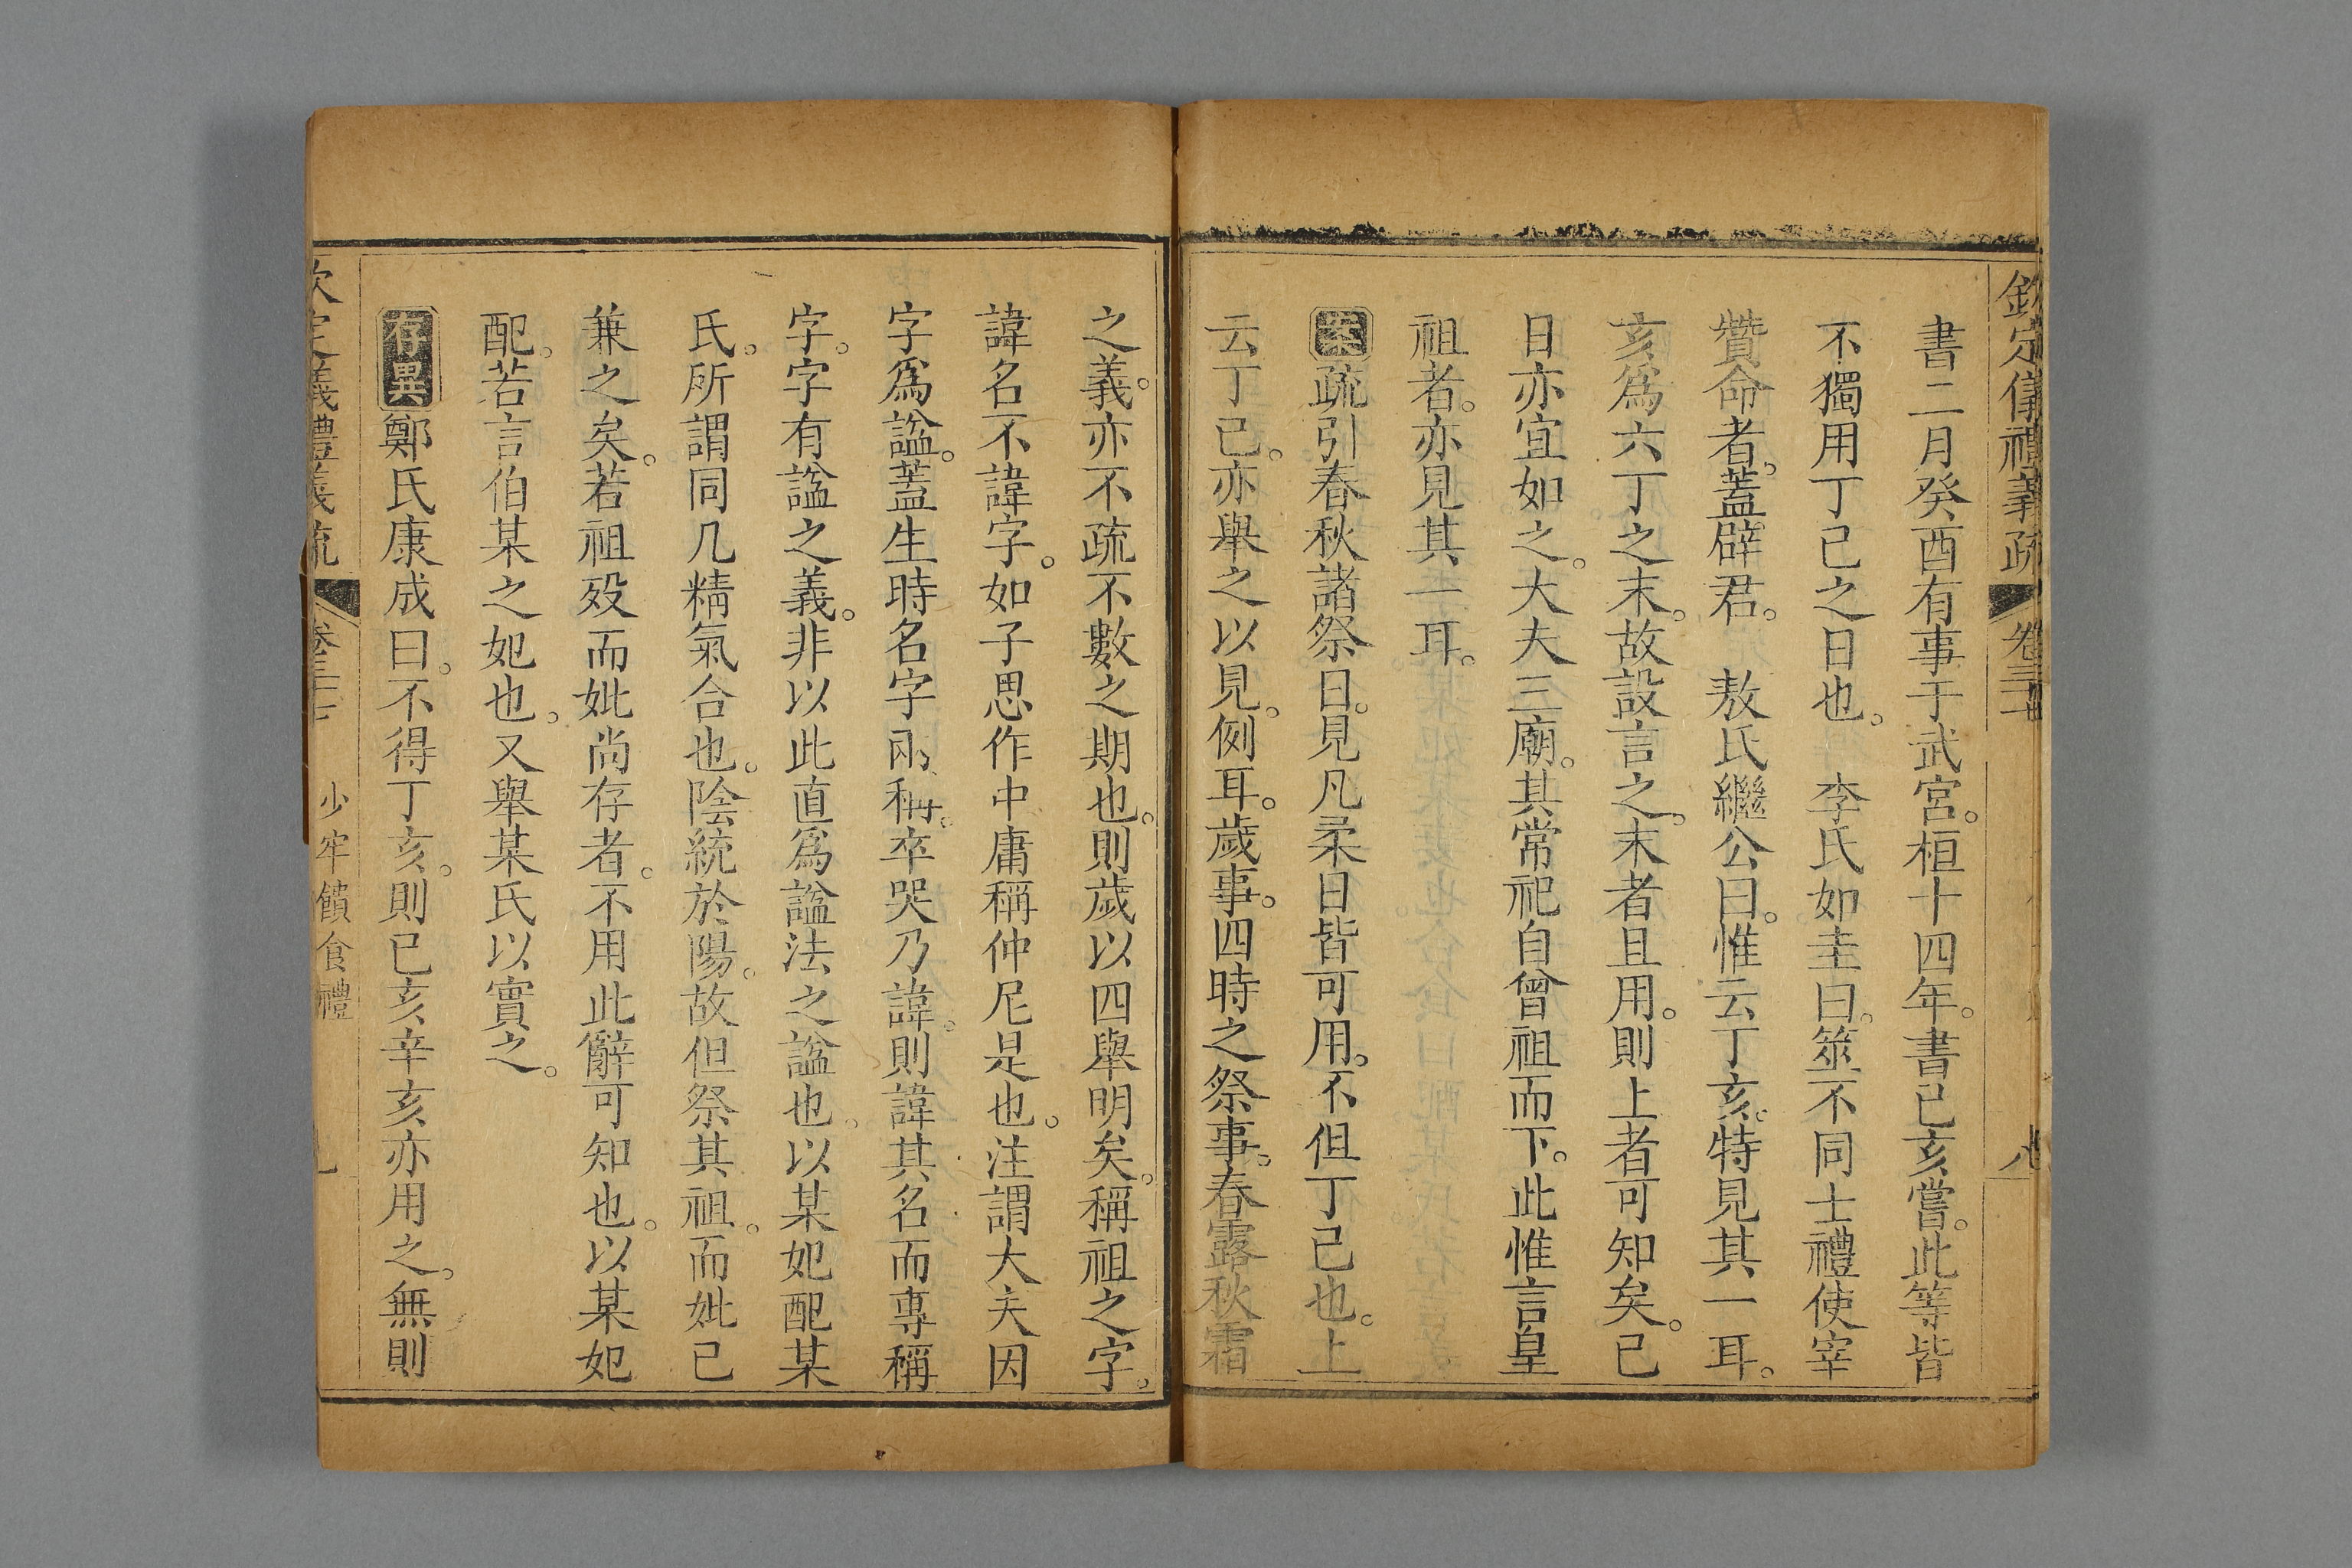 欽定儀禮義疏 卷三十七 八
書二月癸酉有事于武宮。桓十四年。書己亥嘗。此等皆
不獨用丁己之日也。 李氏如圭曰。筮不同士禮使宰
贊命者。蓋辟君。 敖氏繼公曰。惟云丁亥。特見其一耳。
亥為六丁之末。故設言之。末者且用。則上者可知矣。己
日亦宜如之。大夫三廟。其常祀自曾祖而下。此惟言皇
祖者。亦見其一耳。
案疏引春秋諸祭日。見凡柔日皆可用。不但丁己也。上
云丁己。亦舉之以見。例耳。歲事。四時之祭事。春露秋霜
之義。亦不疏不數之期也。則歲以四舉明矣。稱祖之字。
諱名不諱字。如子思作中庸稱仲尼是也。注謂大夫因
字為諡。蓋生時名字兩稱。卒哭乃諱。則諱其名而專稱
字。字有諡之義。非以此直為諡法之諡也。以某妃配某
氏。所謂同几精氣合也。陰統於陽。故但祭其祖。而妣已
兼之矣。若祖歿而妣尚存者。不用此辭可知也。以某妃
配。若言伯某之妃也。又舉某氏以實之。
存異鄭氏康成曰。不得丁亥。則己亥辛亥亦用之。無則
欽定儀禮義疏 卷三十七 少牢饋食禮 九